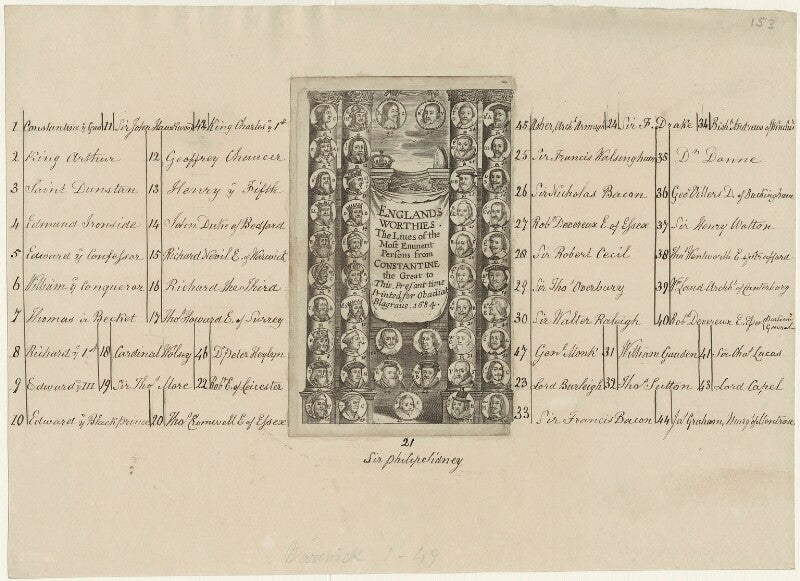 153
1 Constantine ye Great 11 Sir John Hawkwood 42 King Charles ye 1st
2 King Arthur 12 Geoffrey Chaucer
3 Saint Dunstan 13 Henry ye Fifth
4 Edmund Ironside 14 John Duke of Bedford
5 Edward ye Confessor 15 Richard Nevil E. of Warwick
6 William ye Conqueror 16 Richard the Third
7 Thomas a Becket 17 Thos Howard E. of Surrey
8 Richard ye 1st 18 Cardinal Wolsey 46 Dr Peter Heylyn
9 Edward ye III 19 Sir Thos More 22 Robt E. of Leicester
10 Edward ye Black prince 20 Thos Cromwell E. of Essex
ENGLANDS
WORTHIES.
The Lives of the
Most Eminent
Persons from
CONSTANTINE
the Great to
This Present time
Printed for Obadiah
Blagrave. 1684.
45 Usher, Archb Armagh 24 Sir F. Drake 34 Bish. Andrews of Winches
25 Sir Francis Walsingham 35 Dr Donne
26 Sir Nicholas Bacon 36 Geo Villers D. of Buckingham
27 Robt Devereux E. of Essex 37 Sir Henry Wotton
28 Sir Robert Cecil 38 Tho Wentworth E. of Strafford
29 Sir Thos Overbury 39 Wm Laud Archbp of Canterbury
30 Sir Walter Raleigh 40 Robt Devereux E. General
47 Genl Monk 31 William Camden 41 Sir Chs Lucas
23 Lord Burleigh 32 Thos Sutton 43 Lord Capel
33 Sir Francis Bacon 44 Jas Graham, Marqs of Montrose
21
Sir philip Sidney
1-49